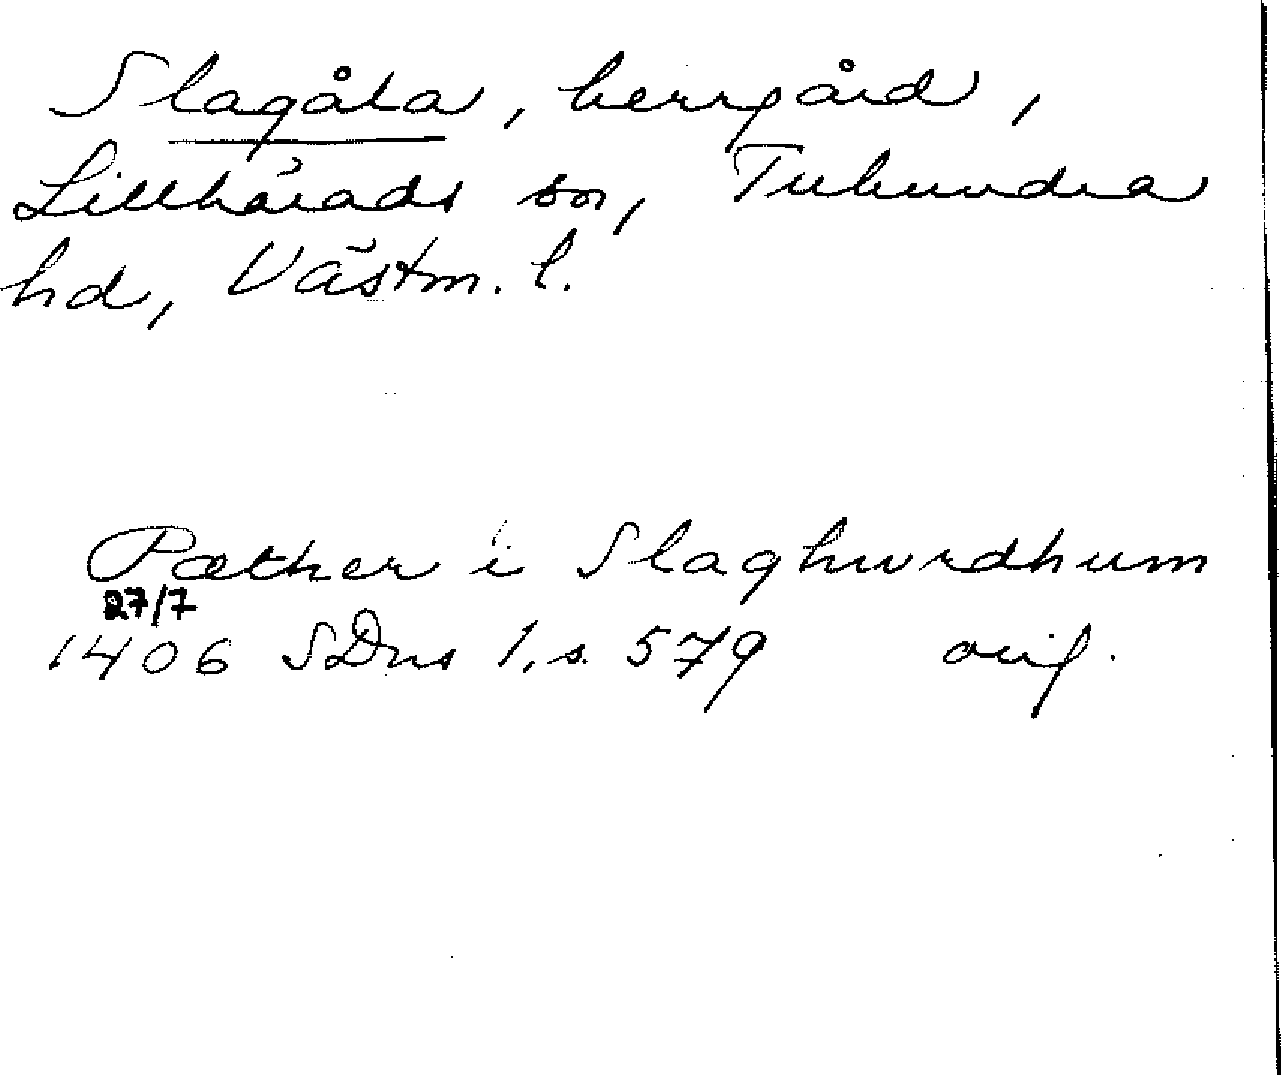 Slagåta, herrgård,
Lillhärads sn, Tuhundra
hd, Västm. l.
Pæther i Slaghurdhum
27/7
1406 SDns 1, s. 579 orig.